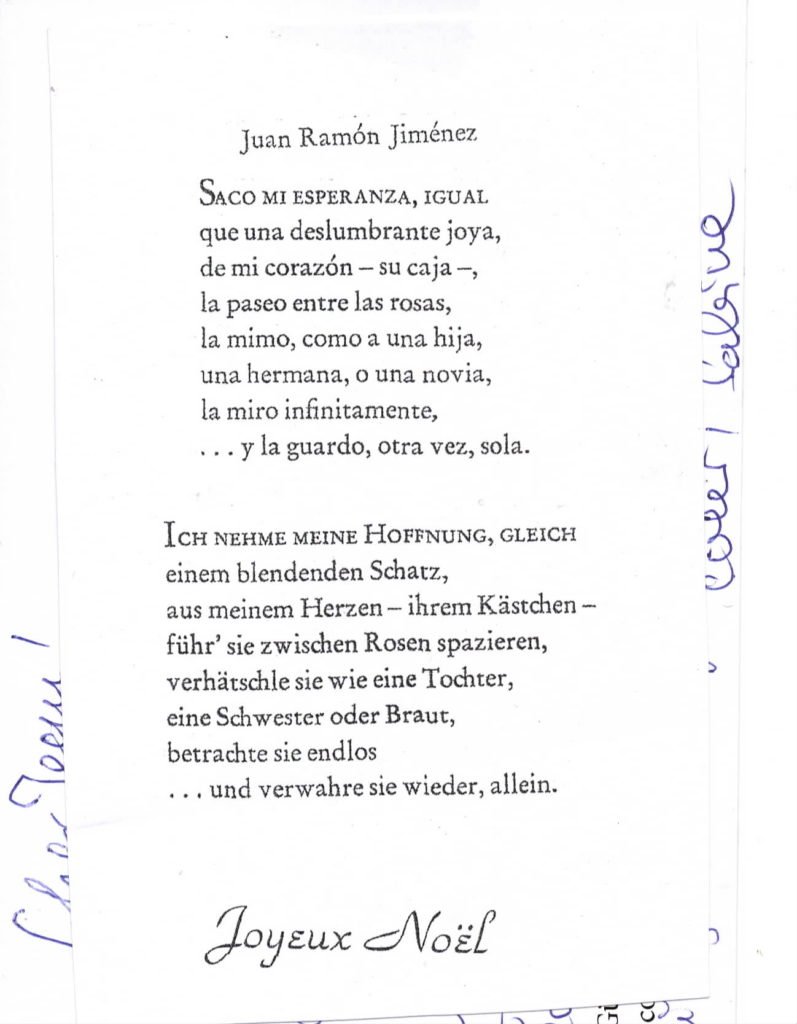 Juan Ramón Jiménez
Saco mi esperanza, igual
que una deslumbrante joya,
de mi corazón – su caja –,
la paseo entre las rosas,
la mimo, como a una hija,
una hermana, o una novia,
la miro infinitamente,
. . . y la guardo, otra vez, sola.
Ich nehme meine Hoffnung, gleich
einem blendenden Schatz,
aus meinem Herzen – ihrem Kästchen –
führ’ sie zwischen Rosen spazieren,
verhätschle sie wie eine Tochter,
eine Schwester oder Braut,
betrachte sie endlos
. . . und verwahre sie wieder, allein.
Joyeux Noël
Sabine